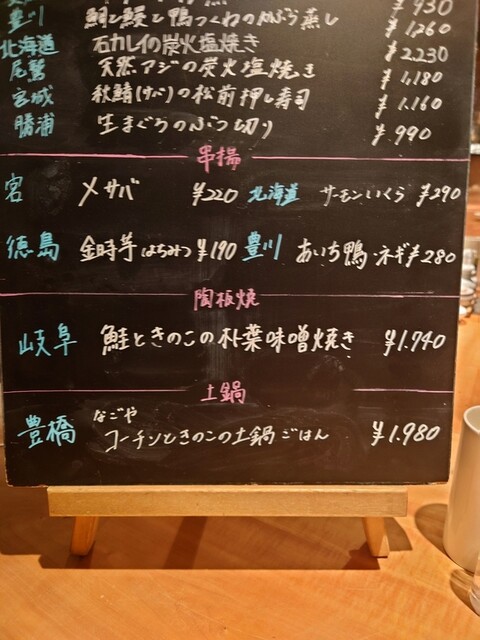 ¥930
豊川 鯛と鰻と鴨つくねのかぶら蒸し ¥1,260
北海道 石カレイの炭火塩焼き ¥2,230
尾鷲 天然アジの炭火塩焼き ¥1,180
宮城 秋鯖(サバ)の松前押し寿司 ¥1,160
勝浦 生まぐろのぶつ切り ¥990
串揚
宮 〆サバ ¥220 北海道 サーモンいくら ¥290
徳島 金時芋はちみつ ¥190 豊川 あいち鴨・ネギ ¥280
陶板焼
岐阜 鮭ときのこの朴葉味噌焼き ¥1,740
土鍋
豊橋 なごや
コーチンときのこの土鍋ごはん ¥1,980